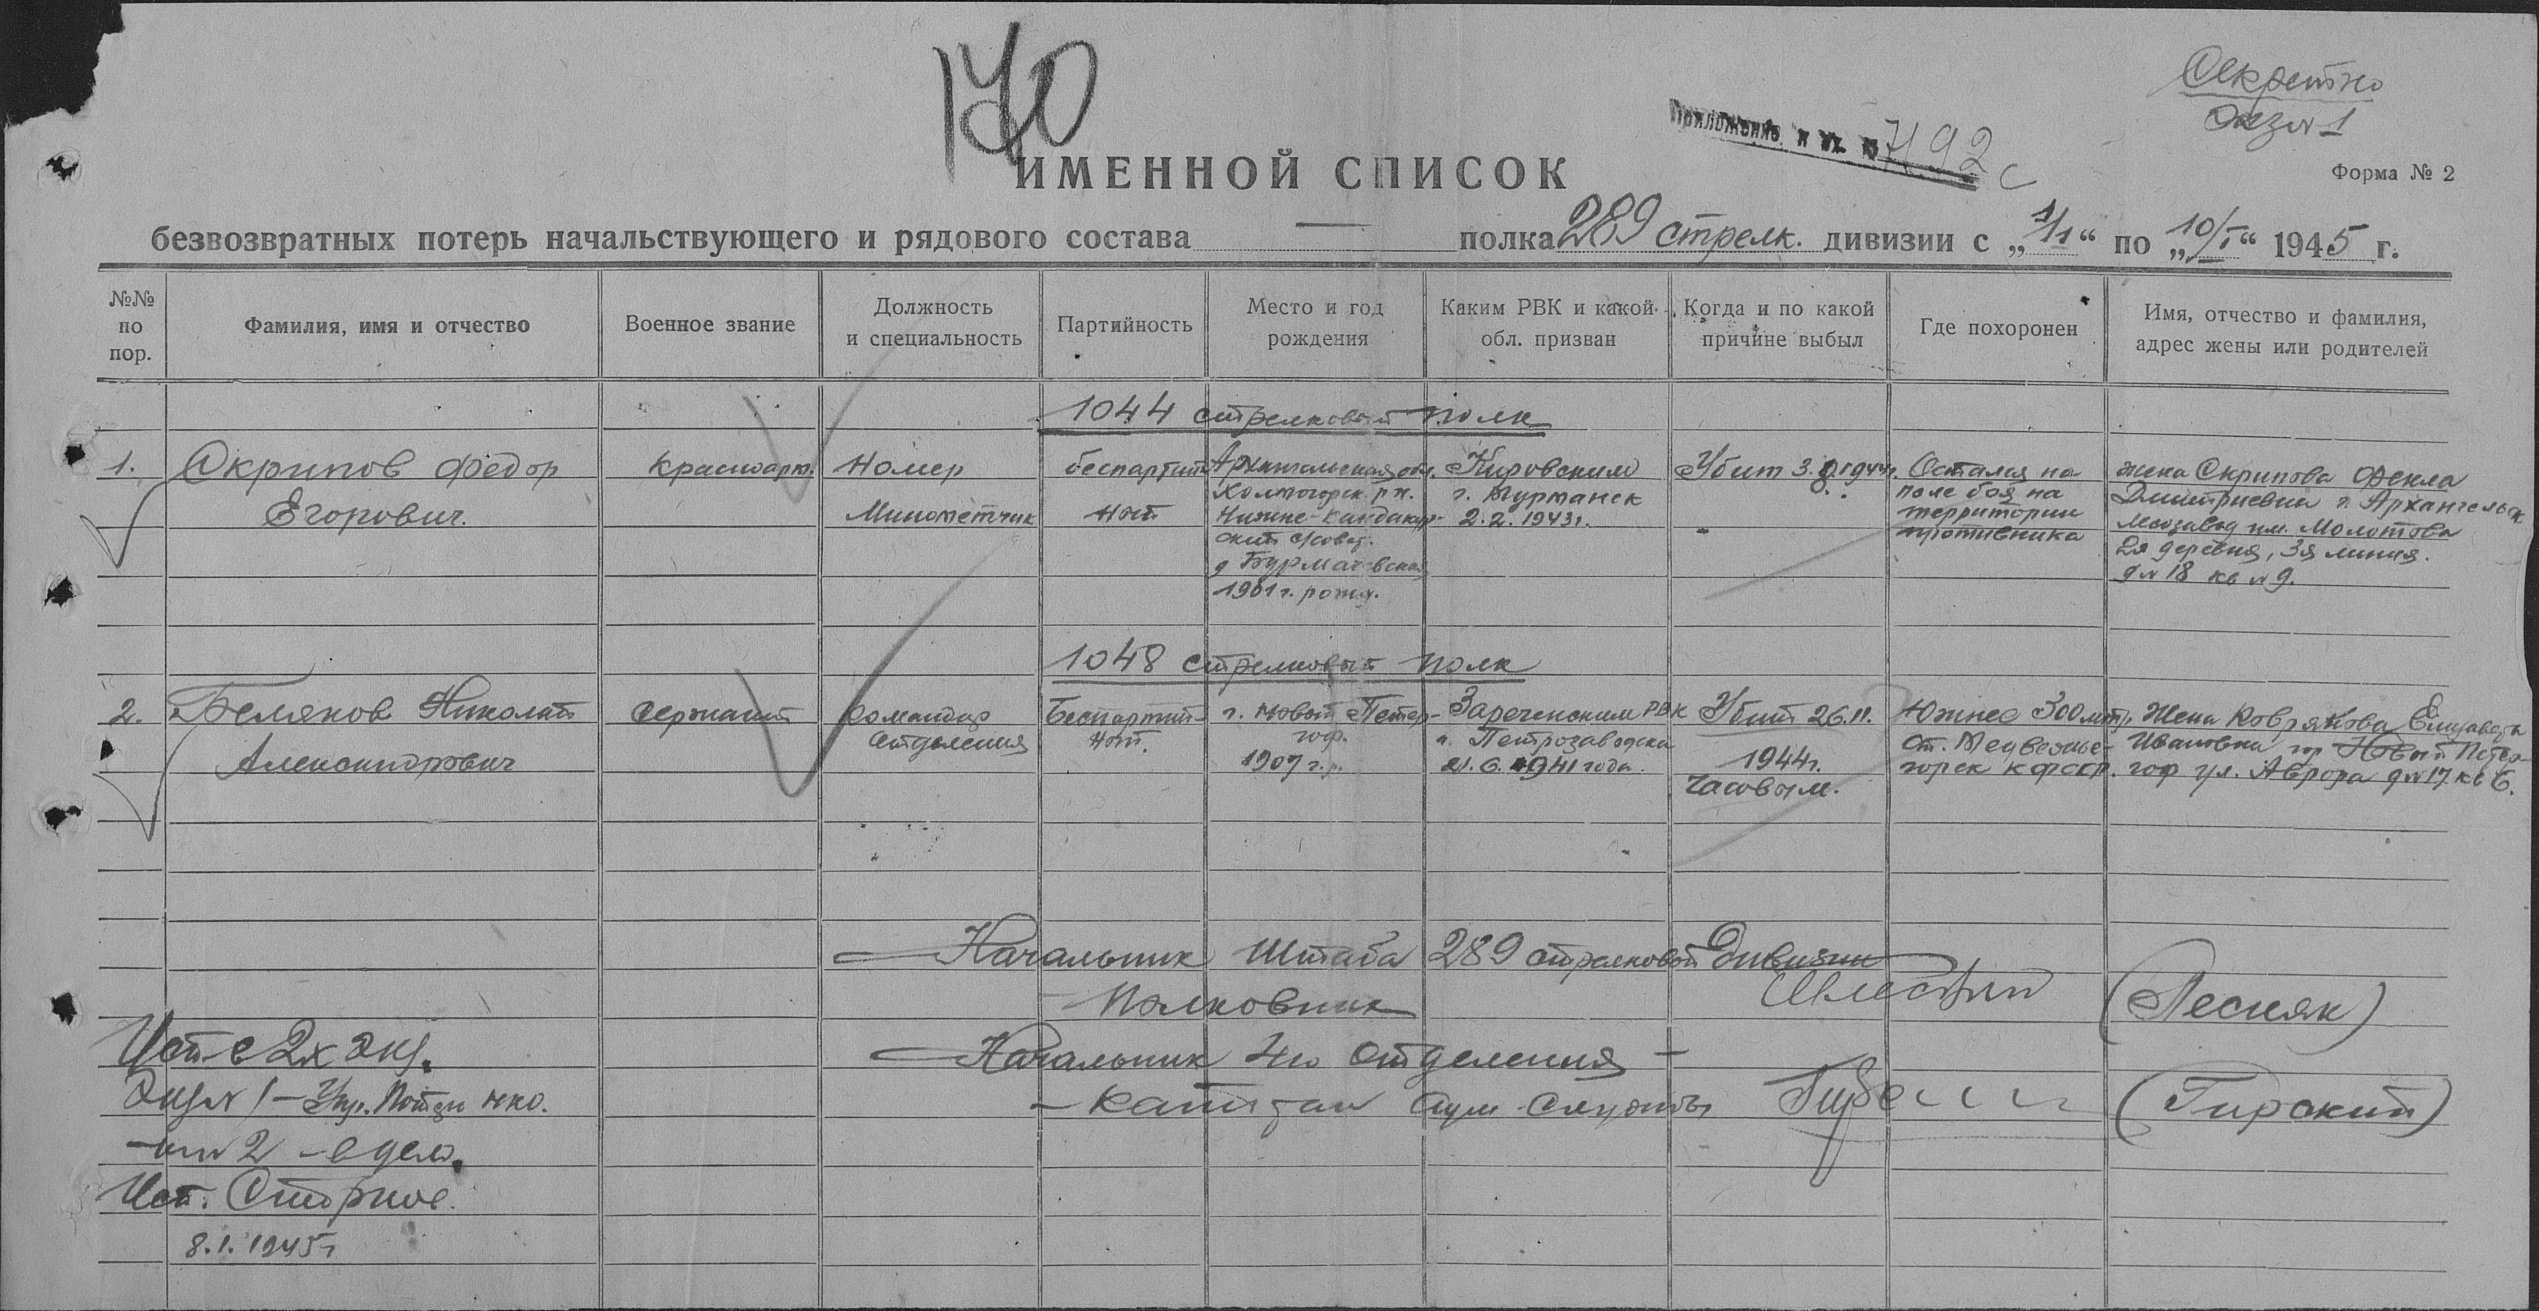 170
Секретно
Экз № 1
Приложение к вх. № 7192с
ИМЕННОЙ СПИСОК
Форма № 2
безвозвратных потерь начальствующего и рядового состава — полка 289 стрелк. дивизии с „1/1“ по „10/I“ 1945 г.
№№ по пор.
Фамилия, имя и отчество
Военное звание
Должность и специальность
Партийность
Место и год рождения
Каким РВК и какой обл. призван
Когда и по какой причине выбыл
Где похоронен
Имя, отчество и фамилия, адрес жены или родителей
1044 стрелковый полк
1.
Скрипов Федор
Егорович.
Красноарм.
Номер
Минометчик
беспартий
ный
Архангельская обл.
Холмогорск. р-н.
Нижне-
с/совет.
д
1901 г. рожд.
Кировским
г. Мурманск
2.2.1943г.
Убит 3. 1944г.
Остался на
поле боя на
территории
противника
жена Скрипова Фекла
Дмитриевна г. Архангельск
Лесозавод им. Молотова
2я деревня, 3я линия.
д № 18 кв № 9.
1048 стрелковый полк
2.
Беляков Николай
Александрович
Сержант
Командир
Отделения
Беспартий
ный.
г. Новый Петер-
гоф.
1907 г.р.
Зареченским РВК
г. Петрозаводска
21.6.1941 года.
Убит 26.11.
1944г.
Часовым.
Южнее 300 мтр,
ст. Медвежье-
горск КФССР.
Жена Коврякова Елизавета
Ивановна гор Новый Петер-
гоф ул. Аврора д № 17 кв 6.
Начальник Штаба 289 стрелковой дивизии
Полковник
(Лесняк)
Начальник 4го Отделения —
— Капитан Адм. Службы
(Гирский)
Исп. в 2х экз.
Экз № 1 — Упр. Потерь НКО.
-"- № 2 — в дело.
Исп.
8.1.1945г